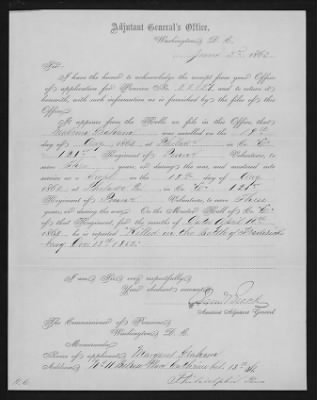 Adjutant General's Office,
Washington, D. C.
June 3rd, 1863
Sir:
I have the honor to acknowledge the receipt from your Office
of application for Pension No. and to return it
herewith, with such information as is furnished by the files of this
Office.
It appears from the Rolls on file in this Office, that
Graham was enrolled on the
day of Aug 1862 at in Co. "C"
121st Regiment of Penna Volunteers, to
serve years, or during the war, and mustered into
service as a on the day of Aug
1862, at in Co. "C" 121st
Regiment of Penna Volunteers, to serve Three
years, or during the war. On the Muster Roll of Co. "C"
of that Regiment, for the months of
1863 he is reported "Killed in the battle of Fredericks
burg Dec 13th 1862."
I am, Sir, very respectfully,
Your obedient servant,
Assistant Adjutant General.
The Commissioner of Pensions,
Washington, D. C.
Memoranda:
Name of applicant, Margaret Graham
Address, No 11 Place Catharine bel. 13th St
Philadelphia Pa